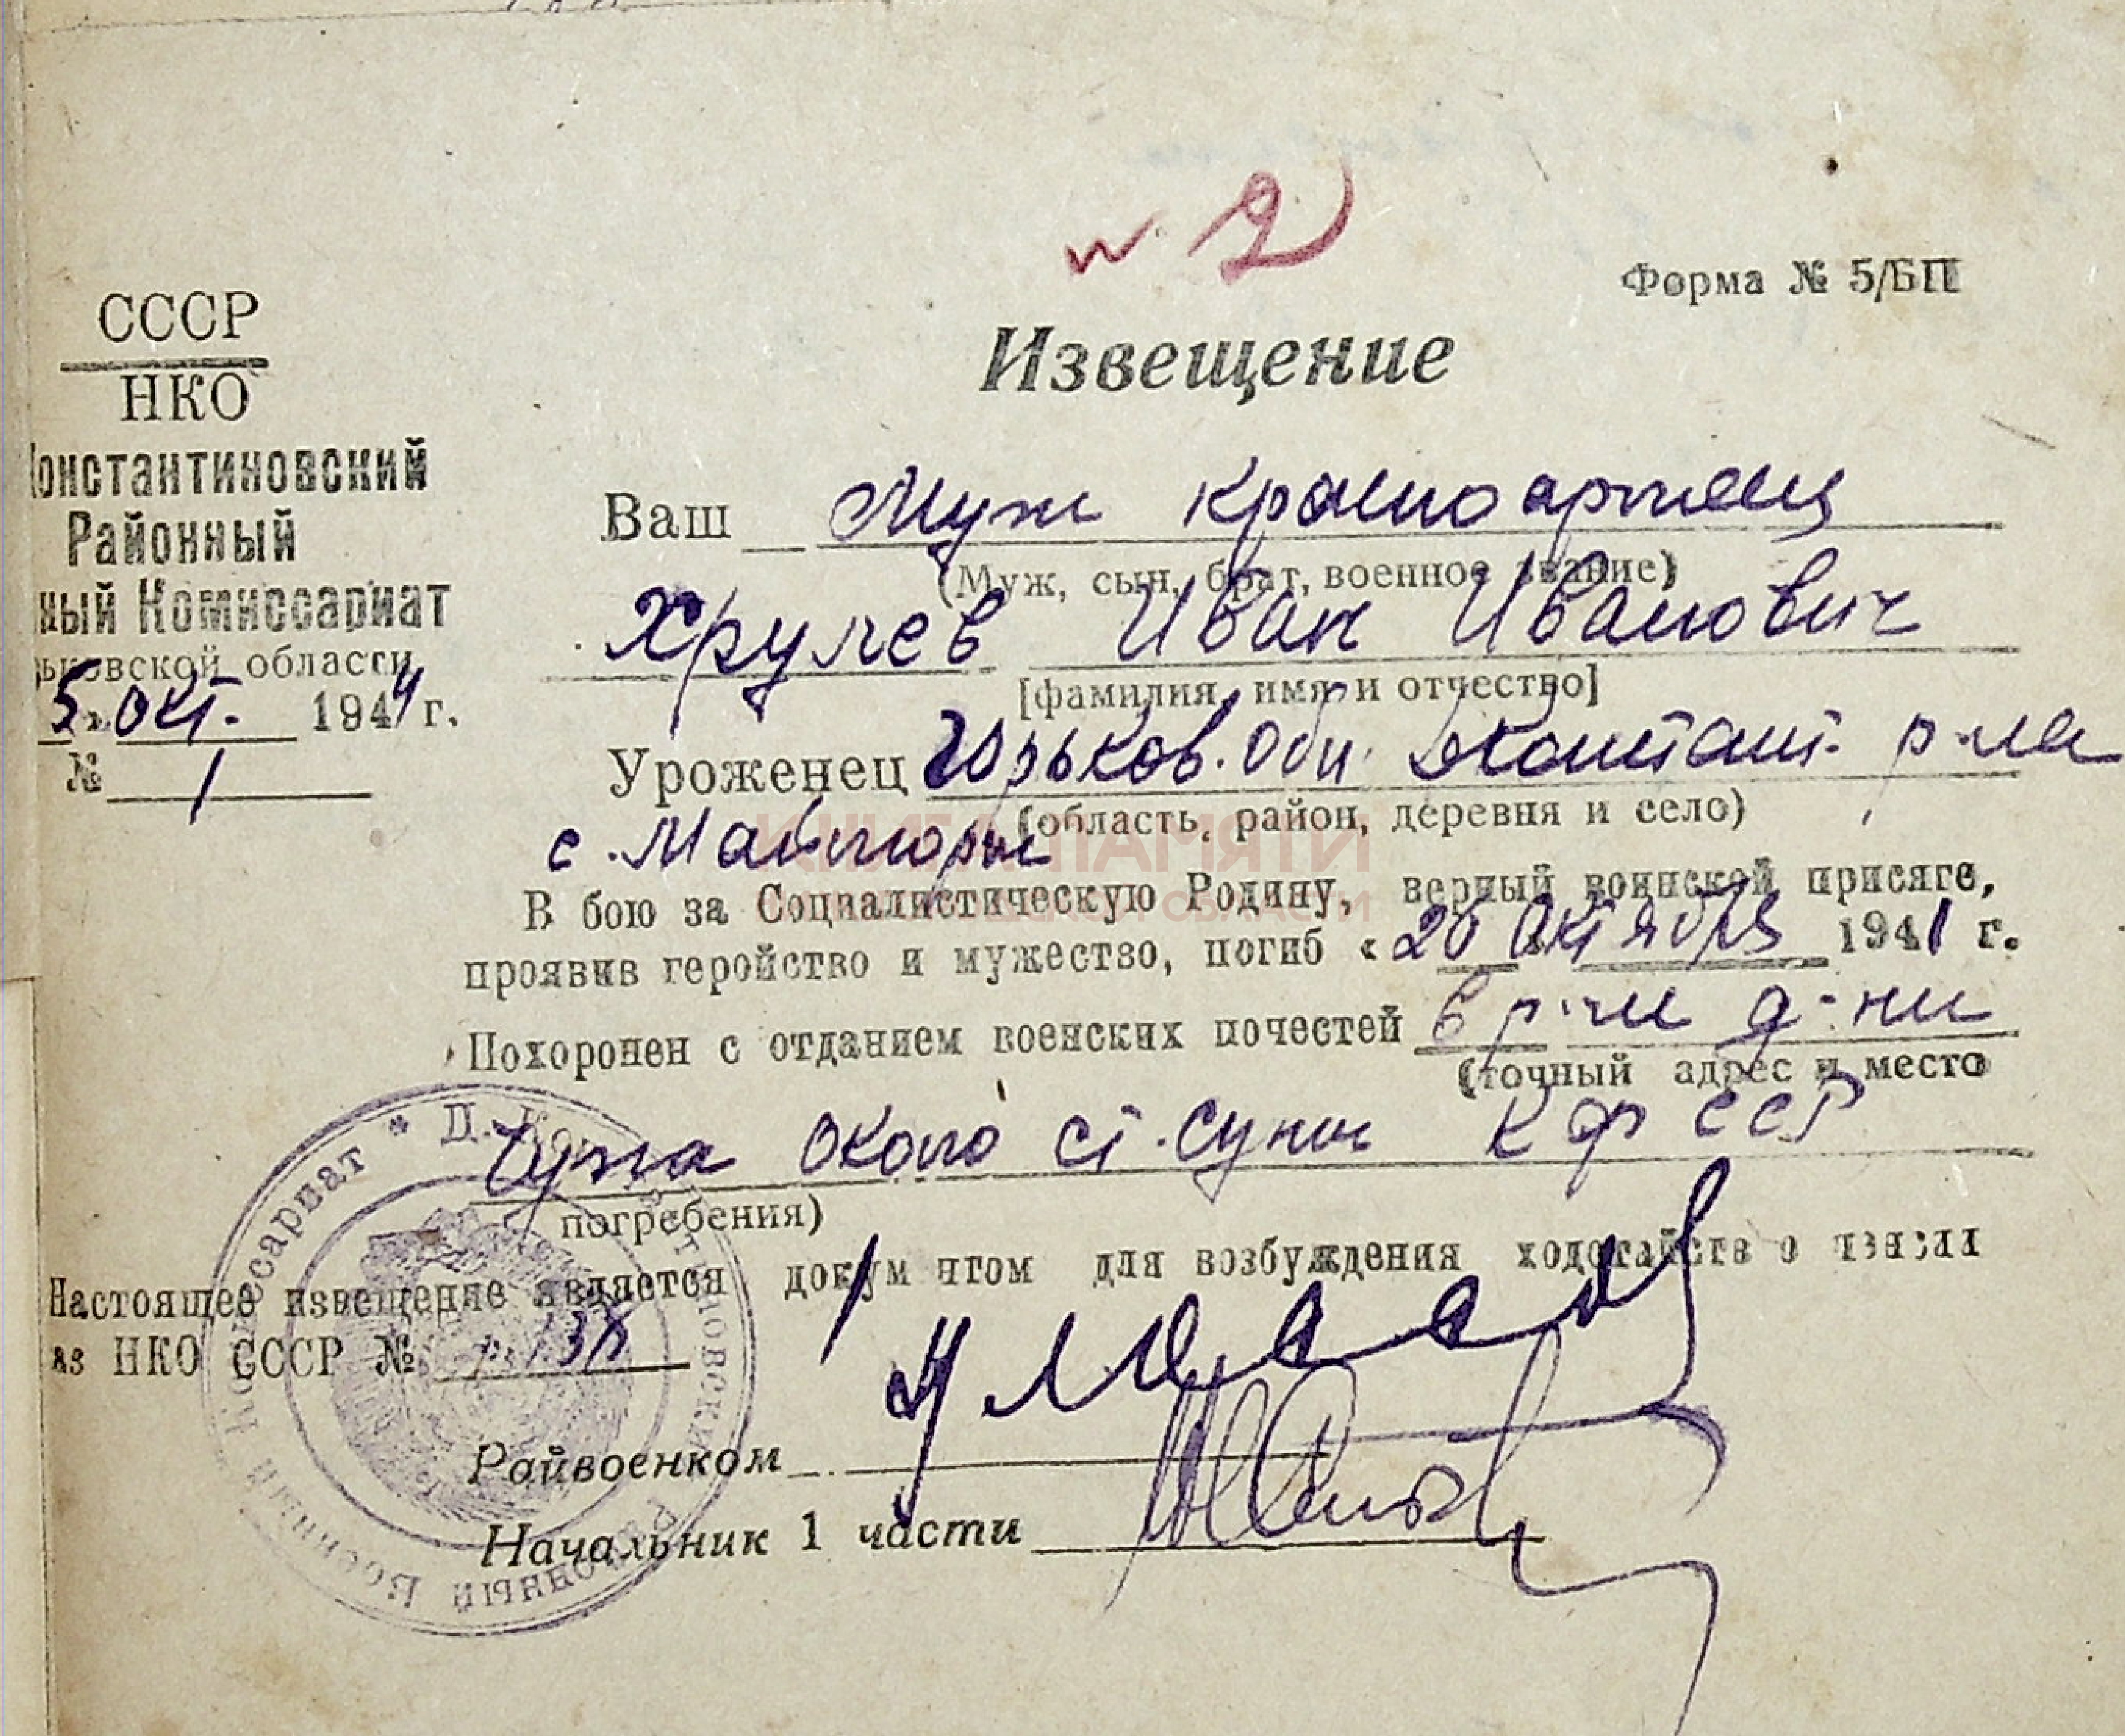 № 2
Форма № 5/БП
СССР
НКО
Константиновский
Районный
ный Комиссариат
ьковской области
5 окт. 1944 г.
№ 1
Извещение
Ваш муж красноармеец
(Муж, сын, брат, военное звание)
Хрулев Иван Иванович
[фамилия, имя и отчество]
Уроженец Горьков. обл. Констант. р-на
(область, район, деревня и село)
с.
КНИГА ПАМЯТИ
ОБЛАСТИ
В бою за Социалистическую Родину, верный воинской присяге,
проявив геройство и мужество, погиб «26 октября 1941 г.
Похоронен с отданием военских почестей в р-не д-ни
(точный адрес и место
около ст. Суна КФССР
погребения)
Настоящее извещение является документом для возбуждения ходатайств о пенсии
аз НКО СССР № 138
Райвоенком
Начальник 1 части
Районный Военный Комиссариат * Д.-Константиновский